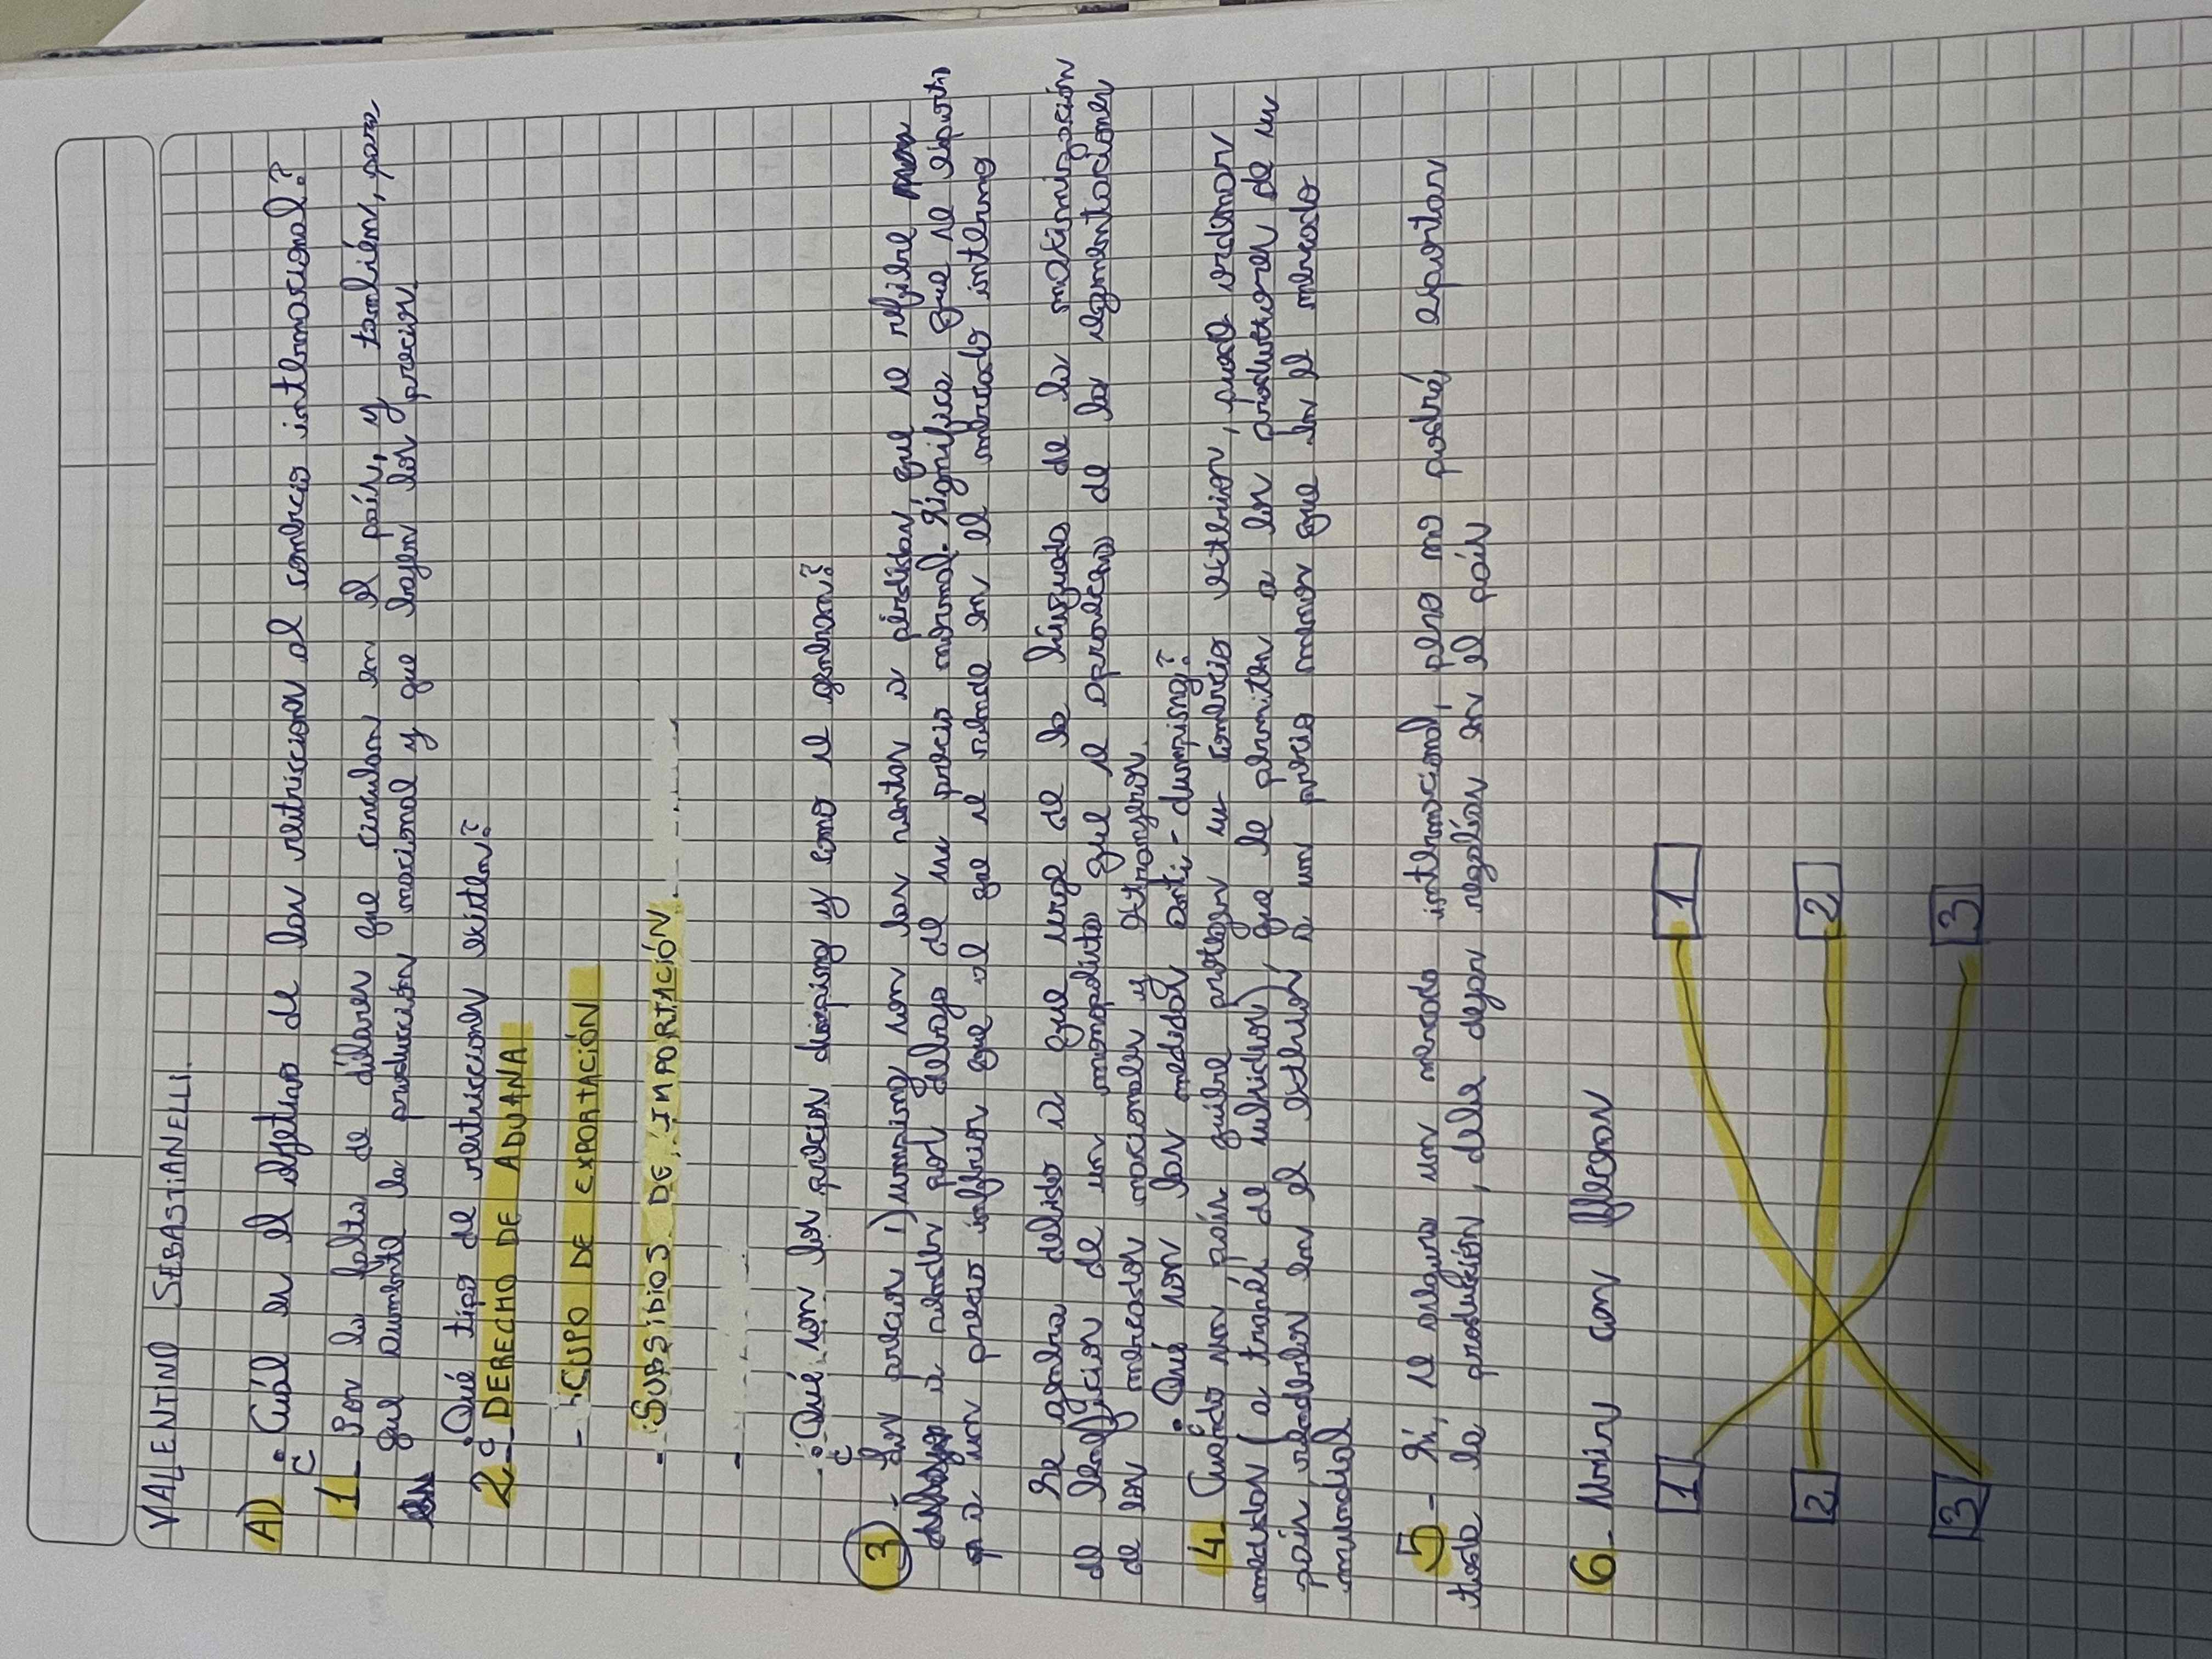 VALENTINO SEBASTIANELLI.
A) ¿Cuál es el objetivo de las restricciones al comercio internacional?
1- Por la falta de dólares que circulan en el país, y también, para
que aumente la producción nacional y que bajen los precios.
¿Qué tipo de restricciones existen?
2- - DERECHO DE ADUANA
- CUPO DE EXPORTACIÓN
- SUBSIDIOS DE IMPORTACIÓN
-
¿Qué son los precios dumping y como se generan?
3 - Los precios dumping son las ventas a pérdidas que se refiere
a vender por debajo de su precio normal. Significa que se exporta
a un precio inferior que al que se vende en el mercado interno
Se genera debido a que surge de la búsqueda de la maximización
de beneficios de un monopolista que se aprovecha de la segmentaciones
de los mercados nacionales y extranjeros.
4- ¿Qué son las medidas anti-dumping?
Cuando un país quiere proteger su comercio exterior, puede ordenar
medidas (a través de subsidios), que le permiten a los productores de su
país venderlos en el exterior, a un precio menor que en el mercado
mundial
5- Si, se asegura un mercado internacional, pero no podrá exportar
toda la producción, debe dejar regalías en el país
6- Unir con flechas
1 1
2 2
3 3